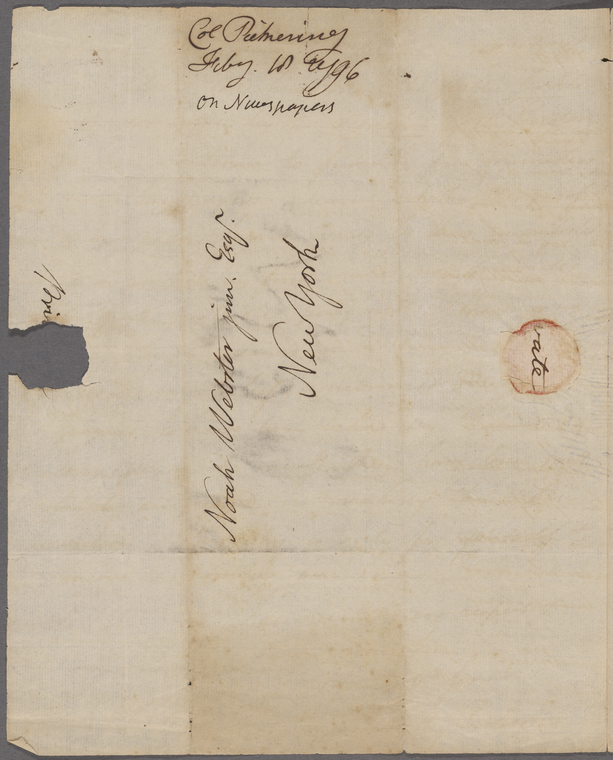 Col Pickering
Feby. 18 1796
on Newspapers
Noah Webster jun. Esqr.
New York
Pri
vate